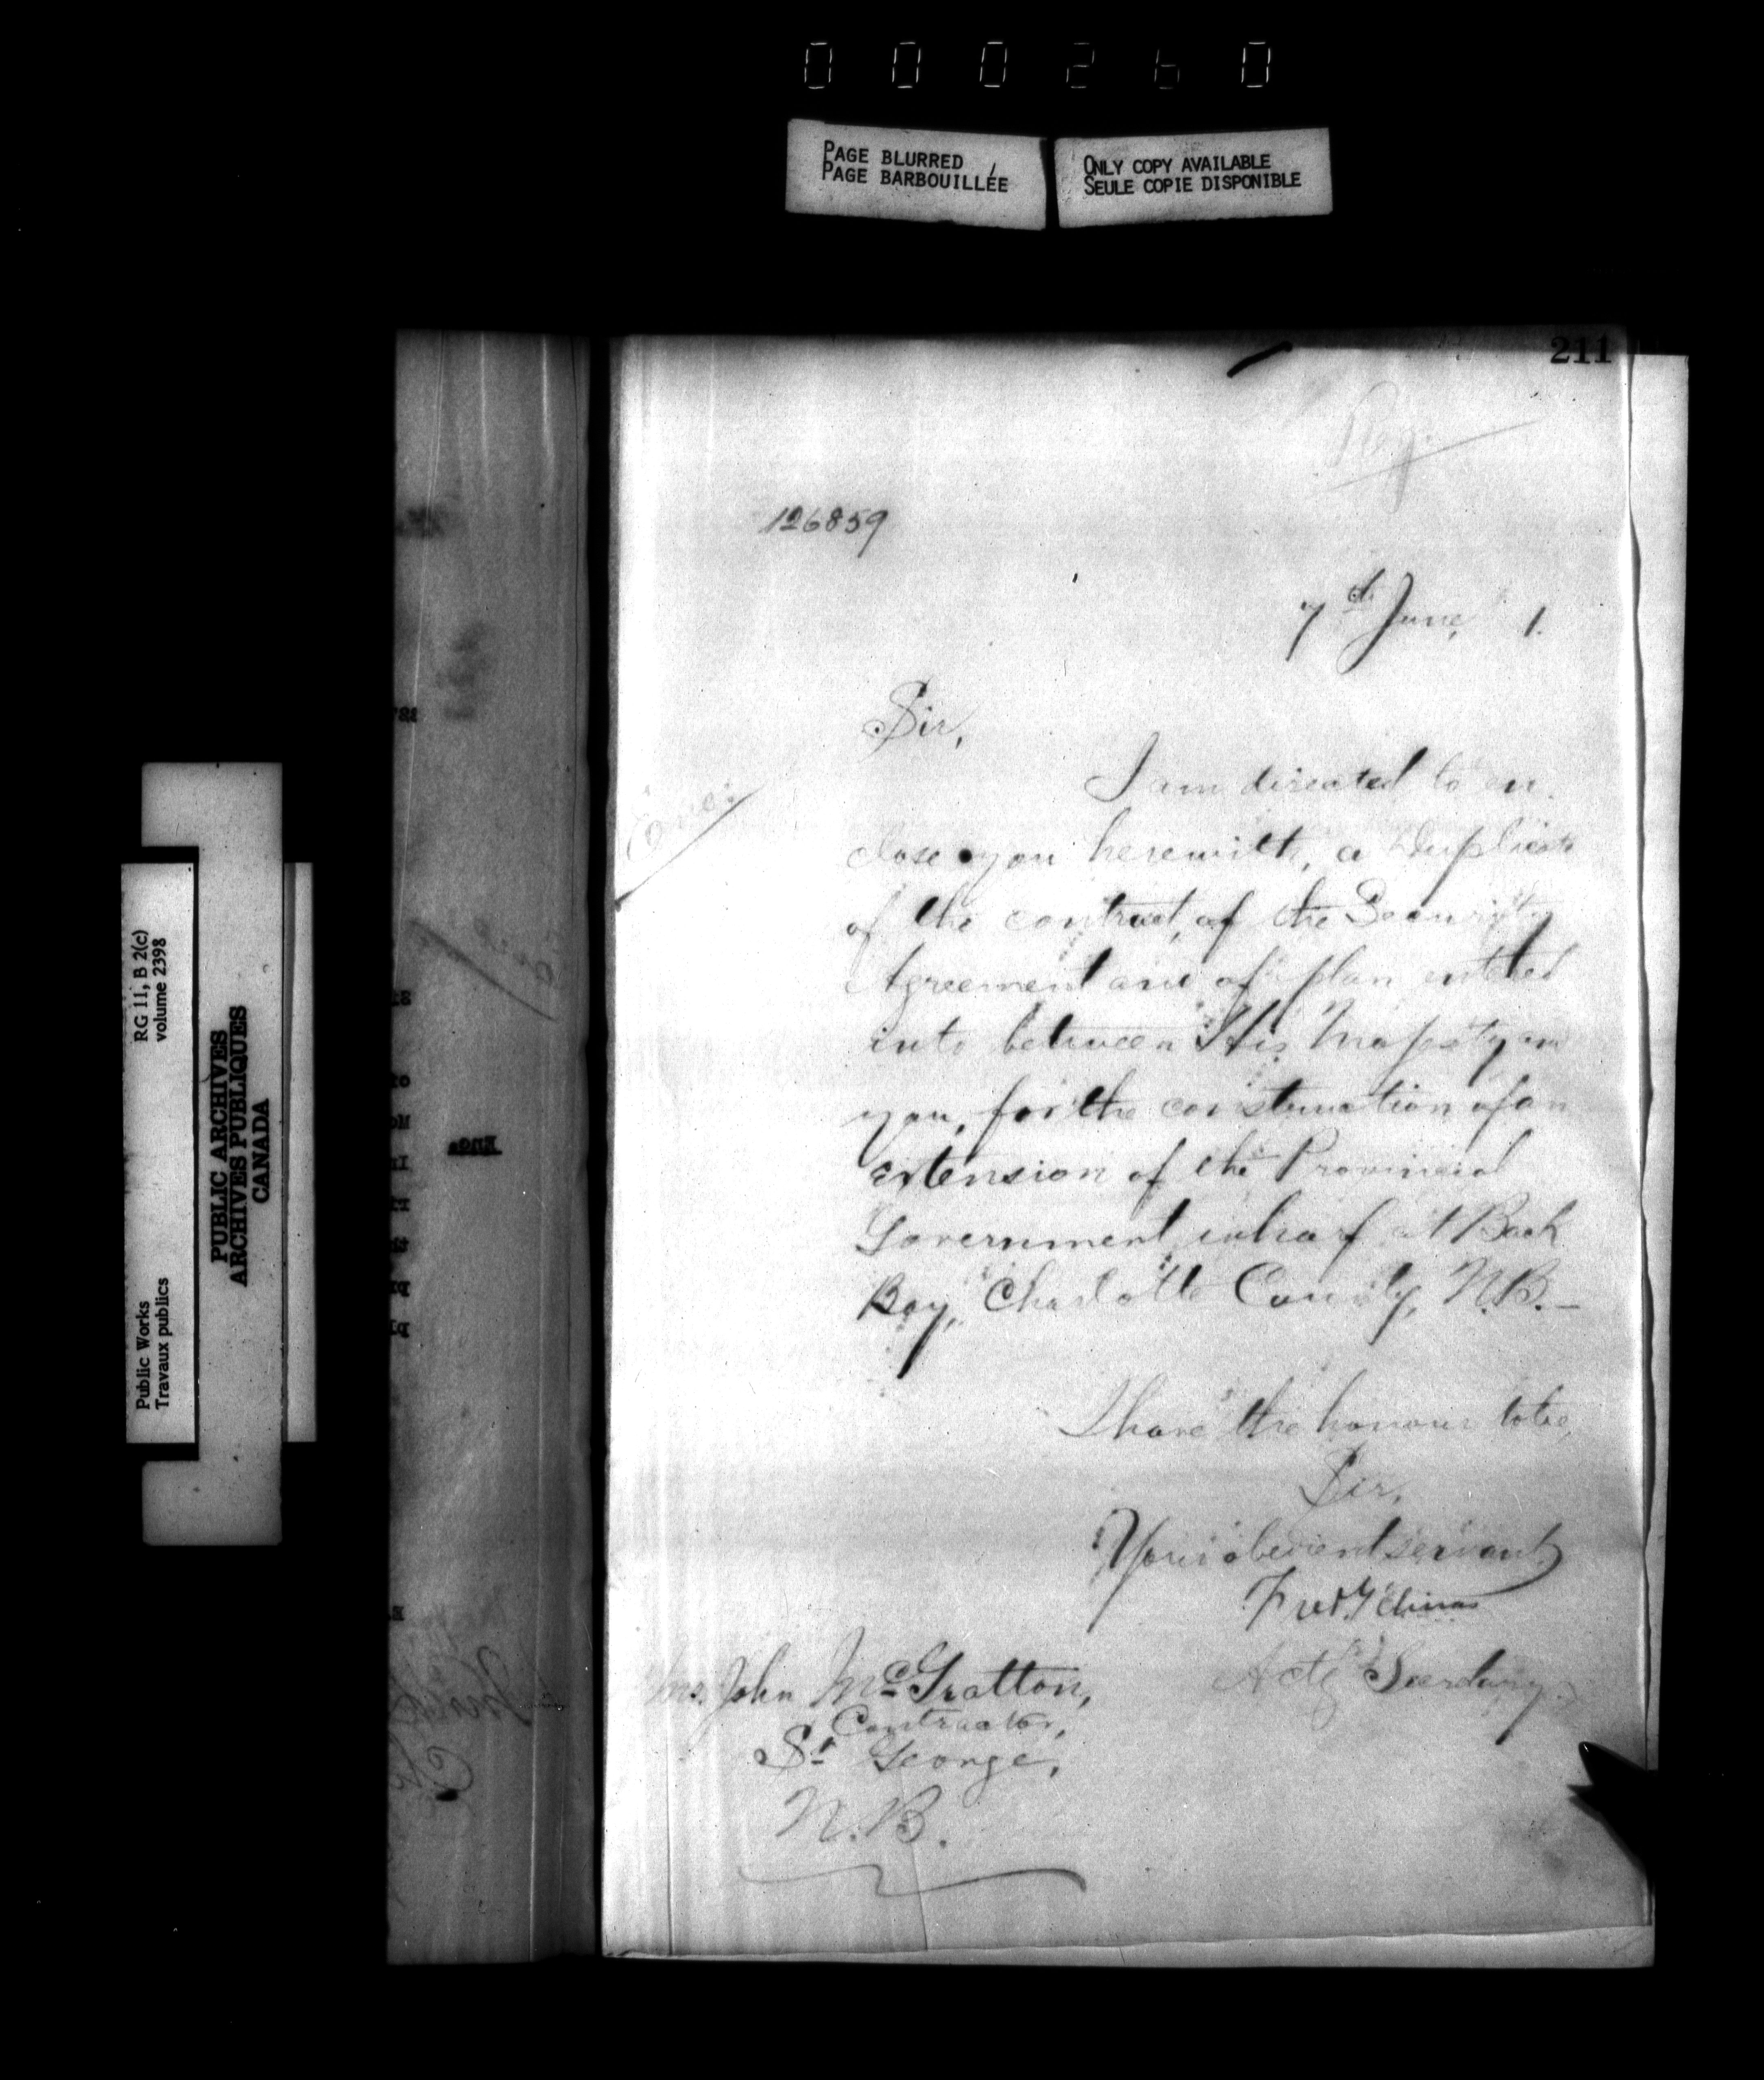 000260
PAGE BLURRED
PAGE BARBOUILLÉE
ONLY COPY AVAILABLE
SEULE COPIE DISPONIBLE
211
Reg.
126859
7th June, 1.
Sir,
I am directed to en
close you herewith, a Duplicate
of the contract, of the Security
Agreement and of plan entered
into between His Majesty and
you, for the construction of an
extension of the Provincial
Government wharf at Back
Bay, Charlotte County, N.B.—
I have the honour to be,
Sir,
Your obedient servant,
Fred
Actg Secretary.
John McGratton,
Contractor,
St George,
N.B.
RG 11, B 2(c)
volume 2398
PUBLIC ARCHIVES
ARCHIVES PUBLIQUES
CANADA
Public Works
Travaux publics